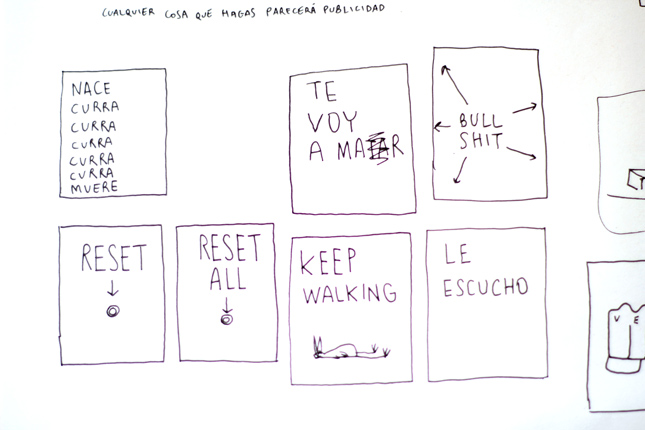 CUALQUIER COSA QUE HAGAS PARECERÁ PUBLICIDAD
NACE
CURRA
CURRA
CURRA
CURRA
CURRA
MUERE
TE
VOY
A MATAR
BULL
SHIT
RESET
RESET
ALL
KEEP
WALKING
LE
ESCUCHO
V E